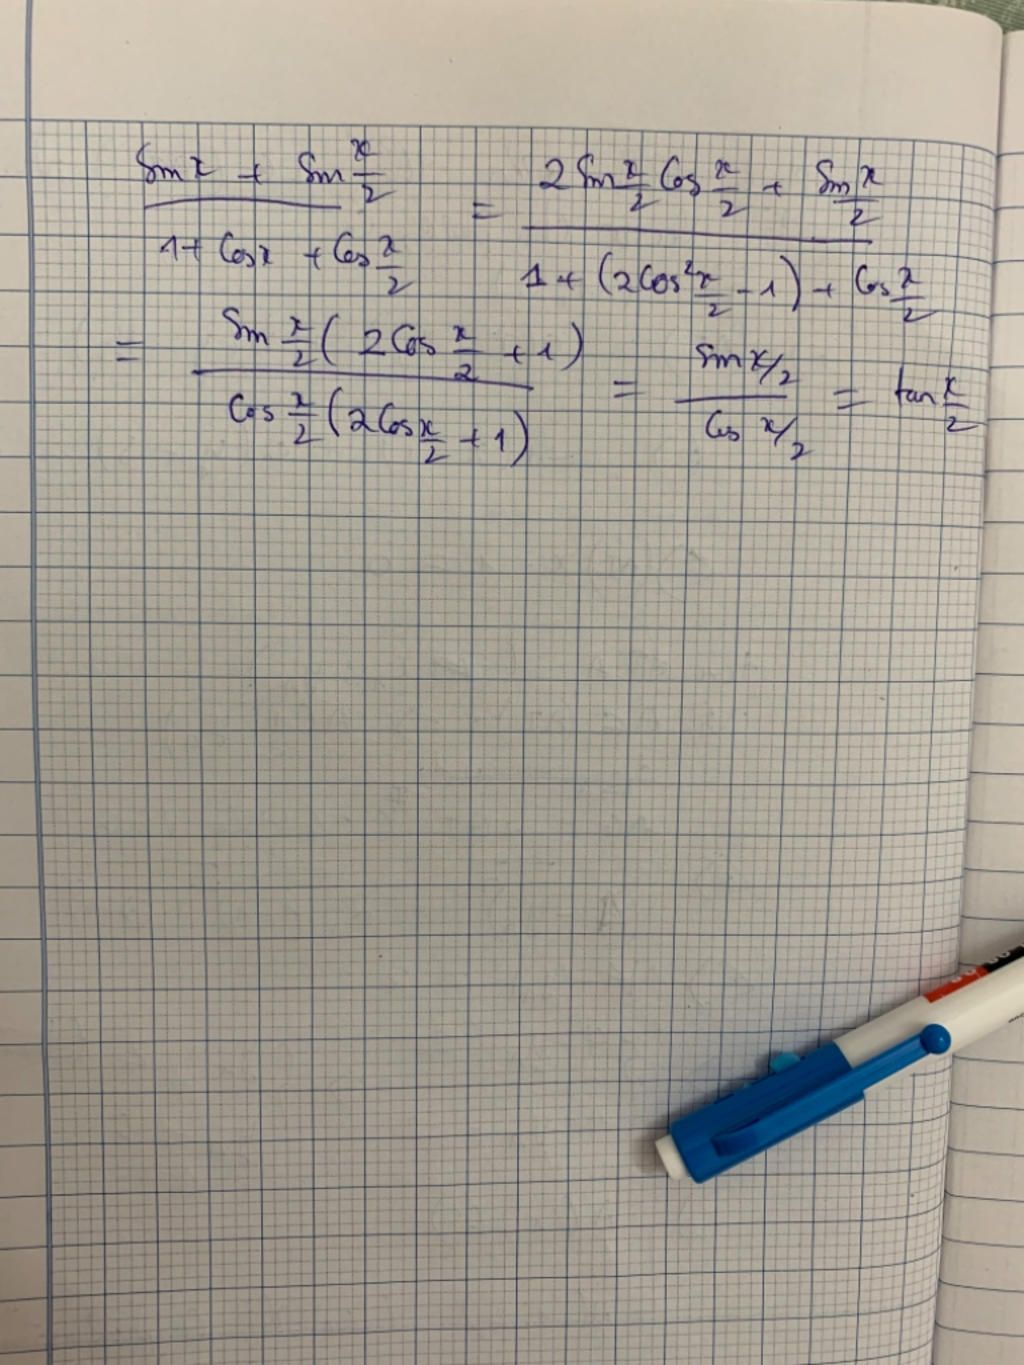 Sin x + Sin x/2 / 1 + Cos x + Cos x/2 = 2 Sin x/2 Cos x/2 + Sin x/2 / 1 + (2Cos² x/2 - 1) + Cos x/2
= Sin x/2 (2Cos x/2 + 1) / Cos x/2 (2Cos x/2 + 1) = Sin x/2 / Cos x/2 = tan x/2